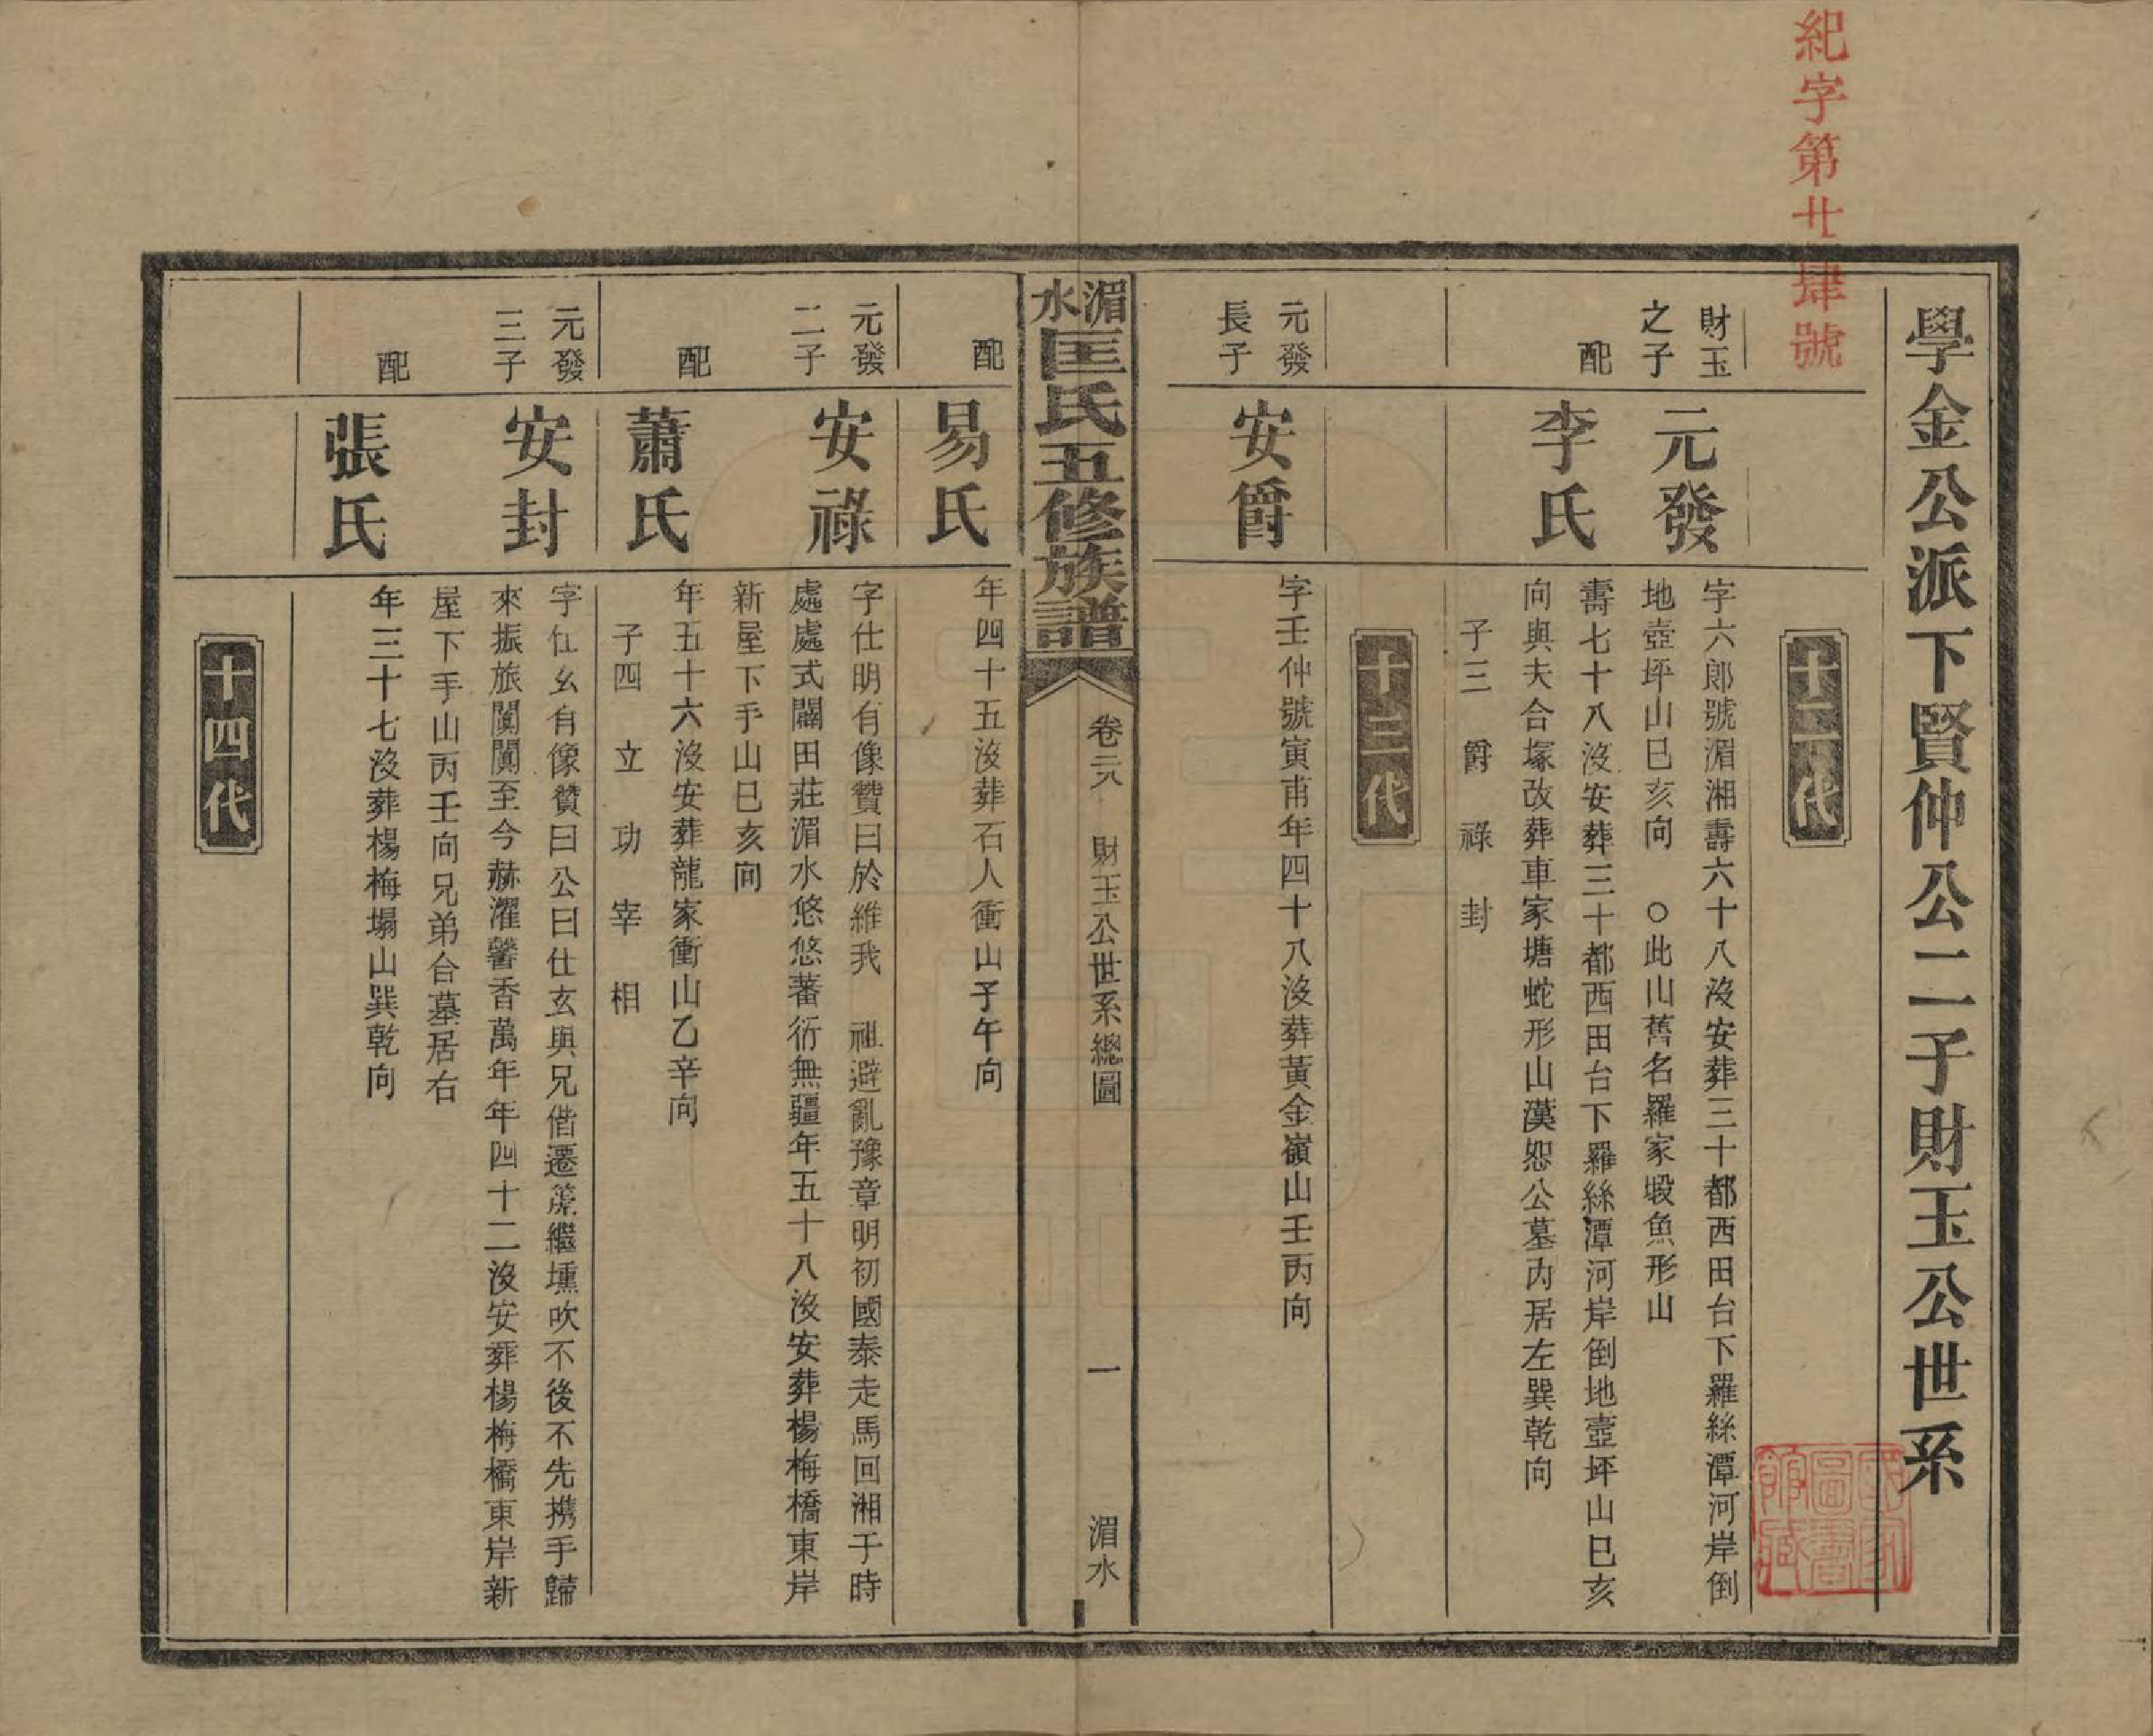 紀字第廿肆號
學金公派下賢仲公二子財玉公世系
十二代
財玉
之子
元發
字六郎號湄湘壽六十八沒安葬三十都西田台下羅絲潭河岸倒
地壺坪山巳亥向　○此山舊名羅家塅魚形山
配
李氏
壽七十八沒安葬三十都西田台下羅絲潭河岸倒地壺坪山巳亥
向與夫合塚改葬車家塘蛇形山漢恕公墓內居左巽乾向
子三　爵　祿　封
十三代
元發
長子
安爵
字壬仲號寅甫年四十八沒葬黃金嶺山壬丙向
湄水
匡氏五修族譜
卷元　財玉公世系總圖
一
湄水
配
易氏
年四十五沒葬石人衝山子午向
元發
二子
安祿
字仕明有像贊曰於維我　祖避亂豫章明初國泰走馬回湘于時
處處式闢田莊湄水悠悠蕃衍無疆年五十八沒安葬楊梅橋東岸
新屋下手山巳亥向
配
蕭氏
年五十六沒安葬龍家衝山乙辛向
子四　立　功　宰　相
元發
三子
安封
字仕玄有像贊曰公曰仕玄與兄偕遷篪繼壎吹不後不先携手歸
來振旅闐闐至今赫濯馨香萬年年四十二沒安葬楊梅橋東岸新
屋下手山丙壬向兄弟合墓居右
配
張氏
年三十七沒葬楊梅塌山巽乾向
十四代
國家
圖書
館藏